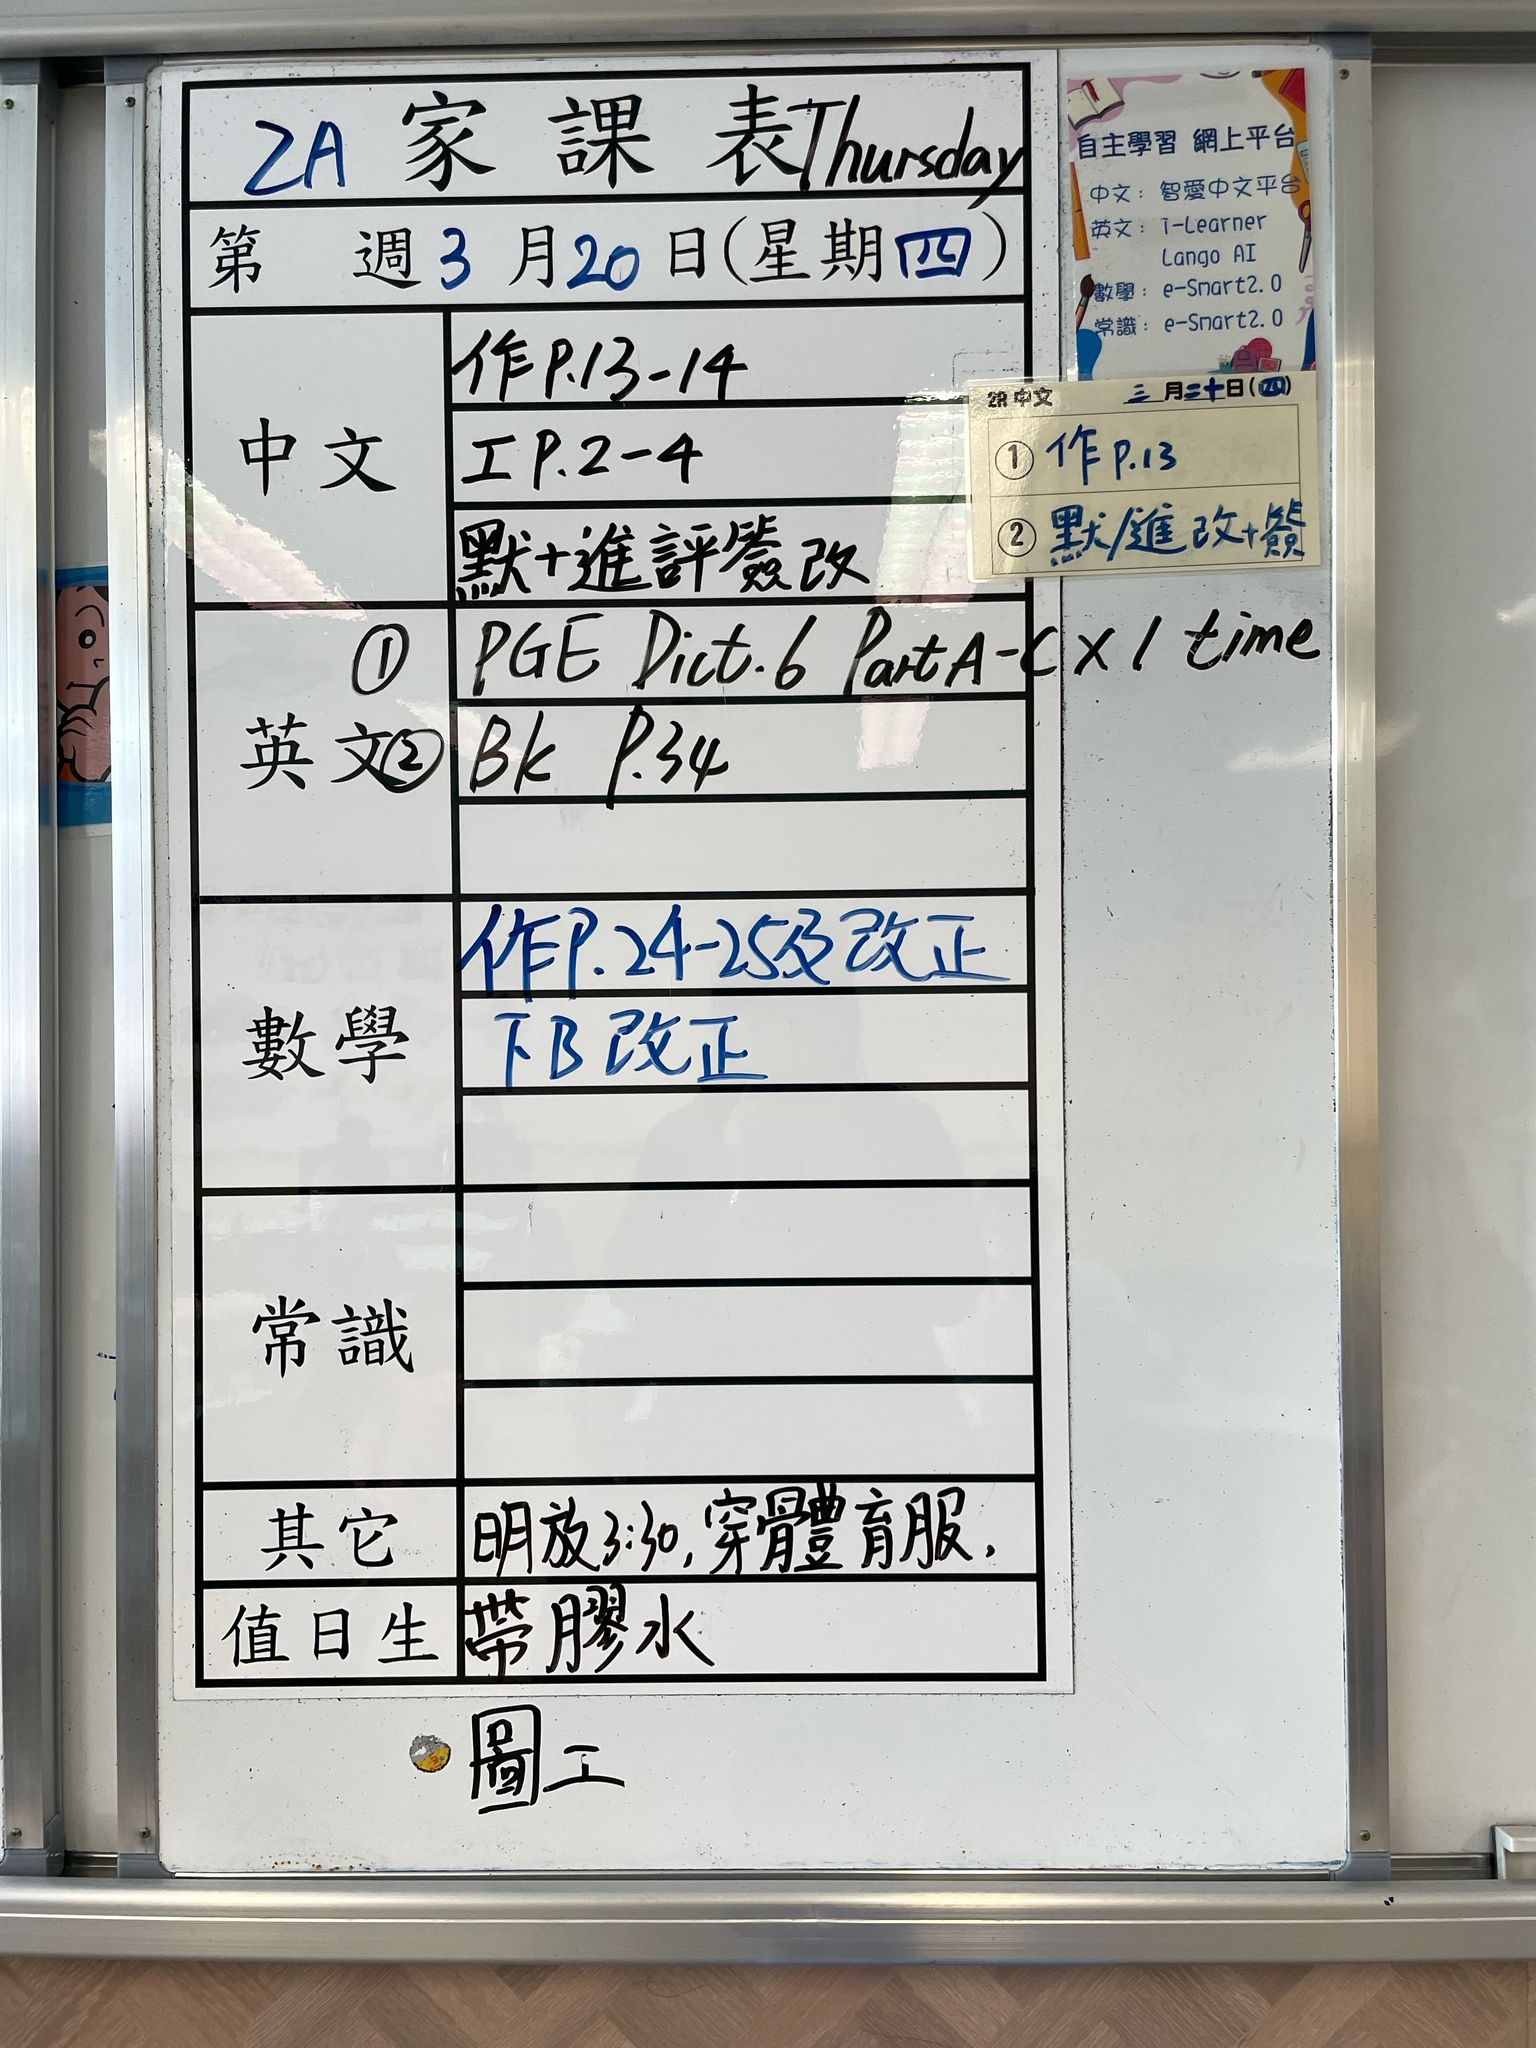 2A 家課表 Thursday
第 週 3 月 20 日(星期四)
中文
作 P.13-14
工 P.2-4
默+進評簽改
英文
① PGE Dict.6 Part A-C x 1 time
② Bk P.34
數學
作 P.24-25及改正
下B 改正
常識
其它
明放3:30, 穿體育服.
值日生
帶膠水
圖工
自主學習 網上平台
中文: 智愛中文平台
英文: i-Learner
Lango AI
數學: e-Smart2.0
常識: e-Smart2.0
2R 中文 三月二十日(四)
① 作 P.13
② 默/進改+簽